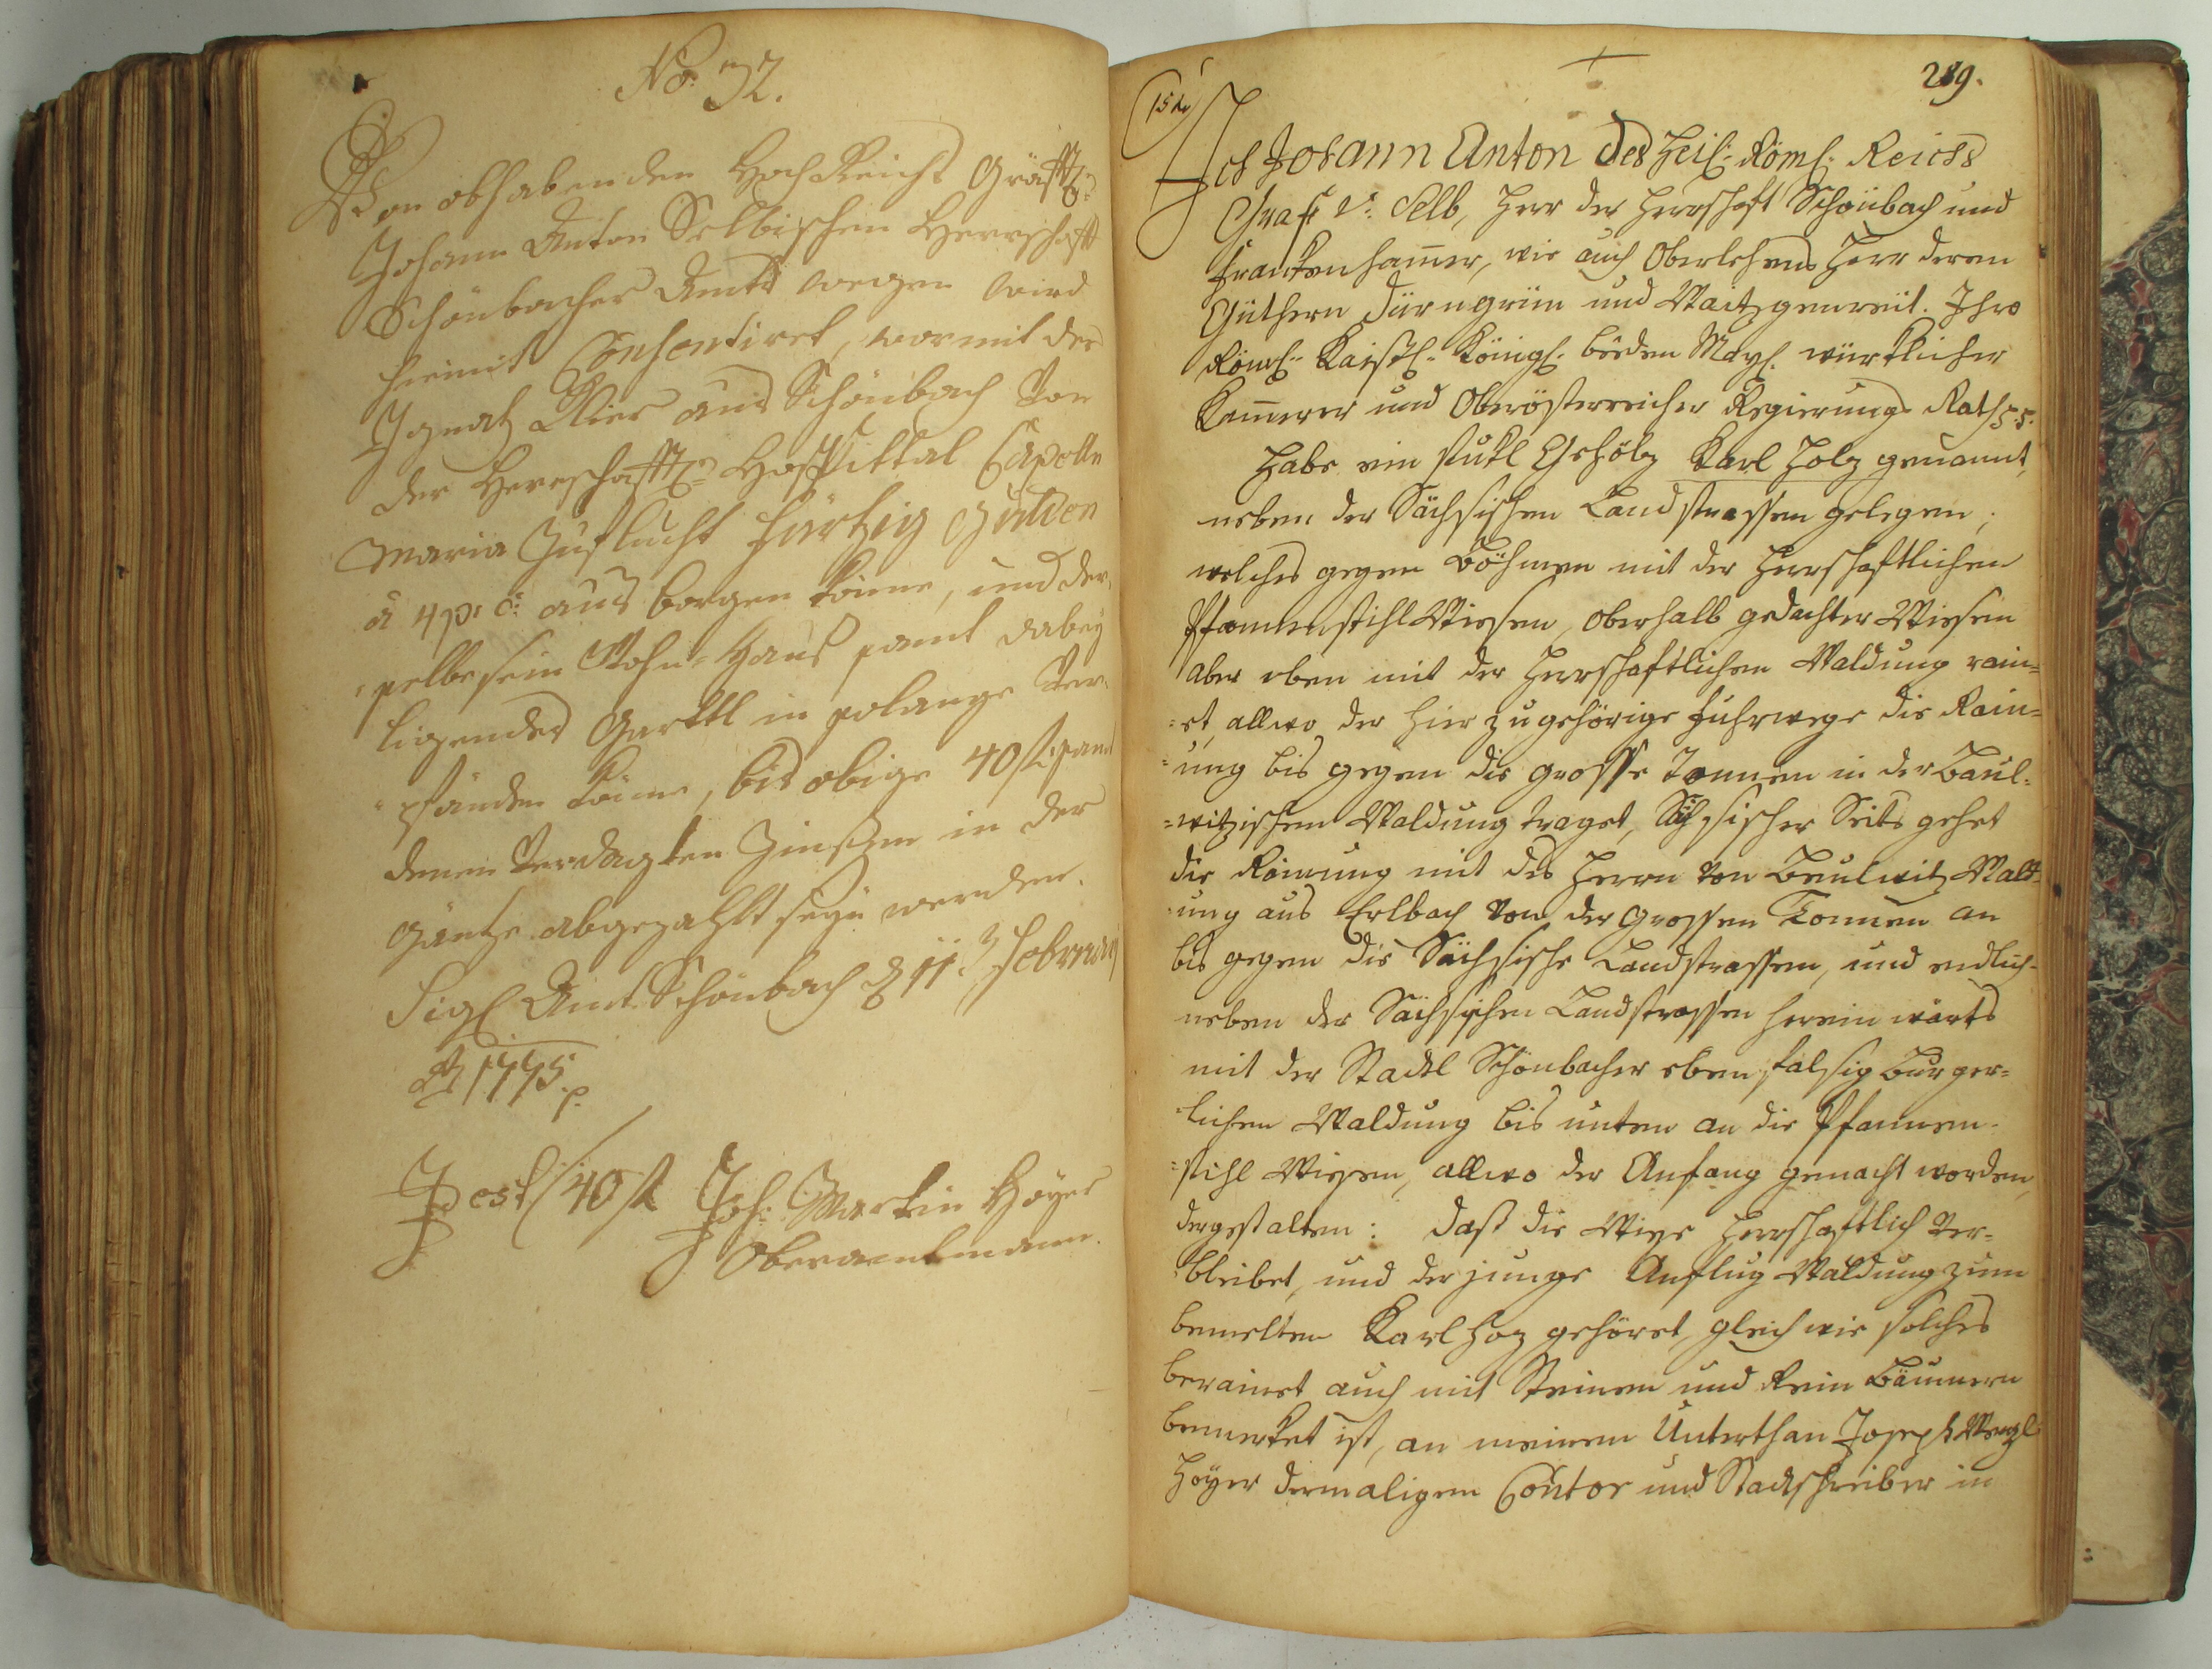 No. 32.
Von obhabenden HochReichs Gräffl:
Johann Anton Selbischen Herrschafft
Schönbacher Ambts wegen wird
hiemit Consentiret, wormit der
Ignatz Klier aus Schönbach von
der Herrschafftl: Hospittal Capelle
Maria Zuflucht Fürtzig Gulden
à 4 p: c: aus borgen könne, und der,
selbe sein Wohn-Haus samt dabey
ligendes Garttl in solange Ver,
pfänden könne, bis obige 40 fl. samt
denen Verdagten Zinßen in der
Gäntze abgezahlt seyn werden.
Sigl Amt Schönbach d 11. Februarij
Ao 1775 p.
Joh: Martin Hoyer
est /40 fl
Oberamtmann.
289.
Ich Johann Anton des Heil: Röml: Reichs
Graff v: Selb, Herr der Herrschaft Schönbach und
Franckenhamer, wie auch Oberlehens Herr deren
Güthern Dürngrün und Waitzgenreut. Ihro
Röml: Kaiserl: Königl: beeden Mayl. würklicher
Kamerer und Oberösterreicher Regierungs Rath
Habe ein stukl Gehöltz Karl Holz genannt,
neben der Sächsischen Landstrassen gelegen,
welches gegen Böhmen mit der Herrschaftlichen
Pfannenstihl Wiesen, oberhalb gedachter Wiesen
aber eben mit der Herrschaftlichen Waldung rain=
=et, allwo der hier zugehörige Fuhrwege die Rain=
=ung bis gegen die grosse Tannen in der Baul=
=witzischen Waldung traget, Sächsischer Seits gehet
die Rainung mit des Herrn von Beulwitz Wald=
=ung aus Erlbach von der Grossen Tannen an
bis gegen die Sächsische Landstrassen, und endlich
neben der Sächsischen Landstrassen herein wärts
mit der Stadtl Schönbacher ebenfalsig Burger=
=lichen Waldung bis unten an die Pfannen=
=stihl Wiesen, allwo der Anfang gemacht worden,
dergestalten: Daß die Wiese Herrschaftlich ver=
=bleibet, und der junge Anflug Waldung zum
bemelten Karl Hoz gehöret, gleich wie solches
berainet auch mit Steinen und Rein Bäumern
bemerket ist, an meinem Unterthan Joseph Wenzl
Hoyer dermaligen Cantor und Stadtschreiber in